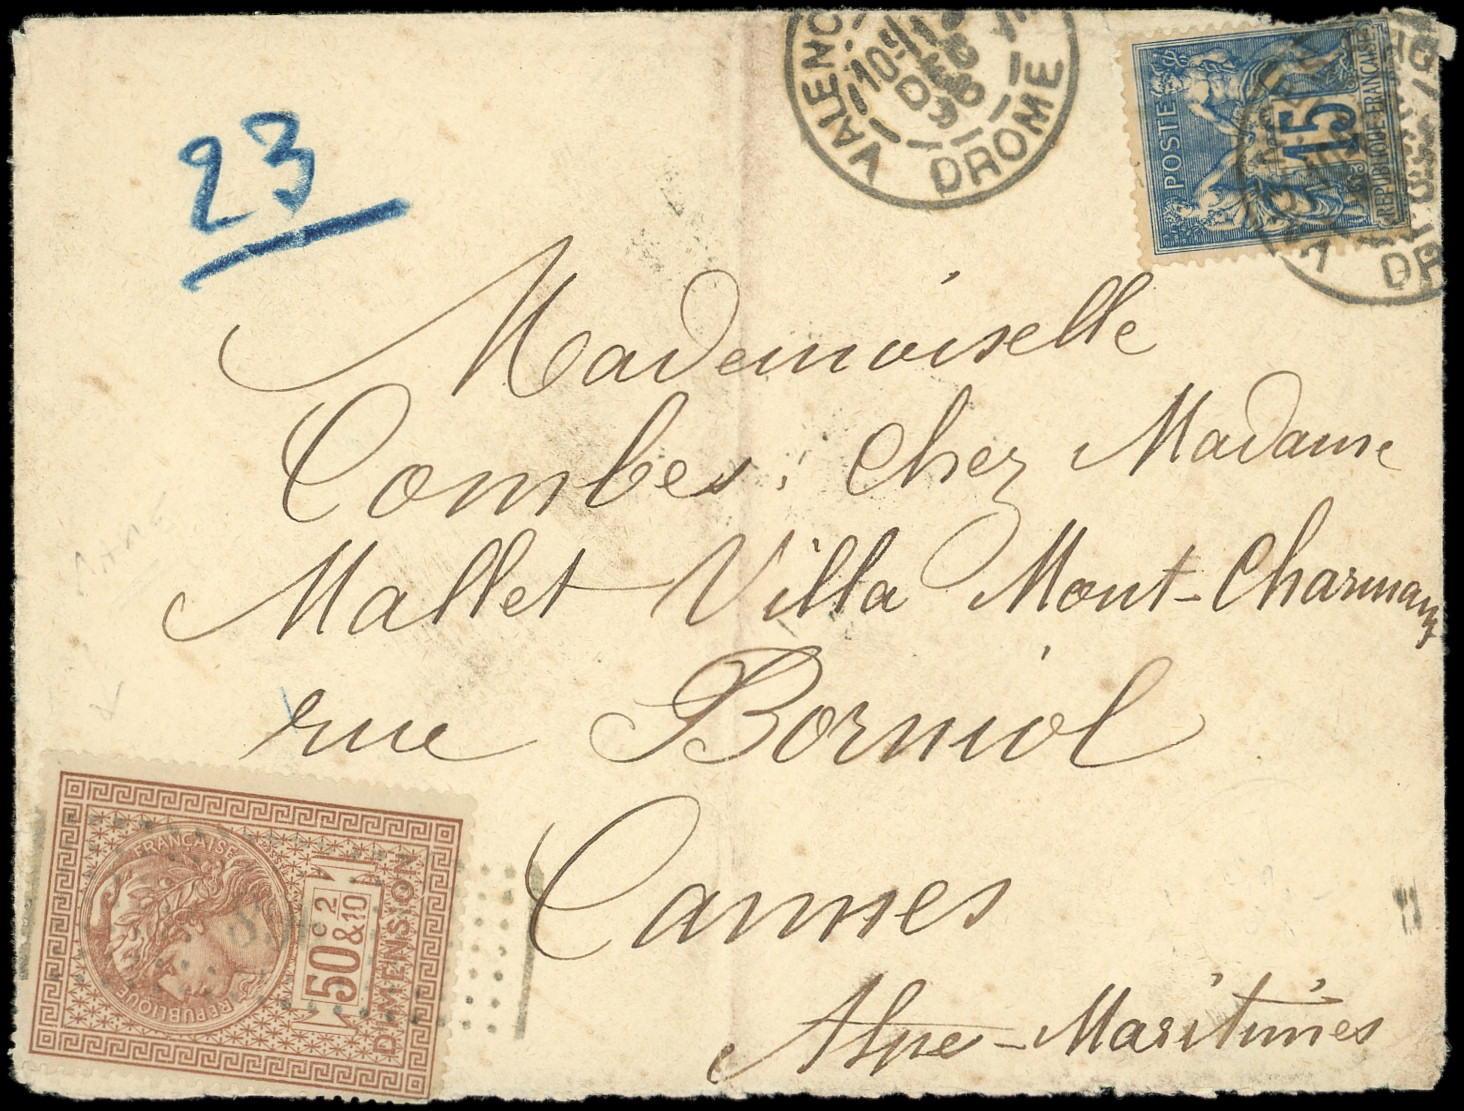 23
VALENC
DROME
POSTE
15
REPUBLIQUE FRANÇAISE
DR
Mademoiselle
Combes. chez Madame
Mallet Villa Mont-Charmant
rue Borniol
Cannes
Alpe-Maritimes
REPUBLIQUE FRANÇAISE
50 c 2 & 10
DIMENSION